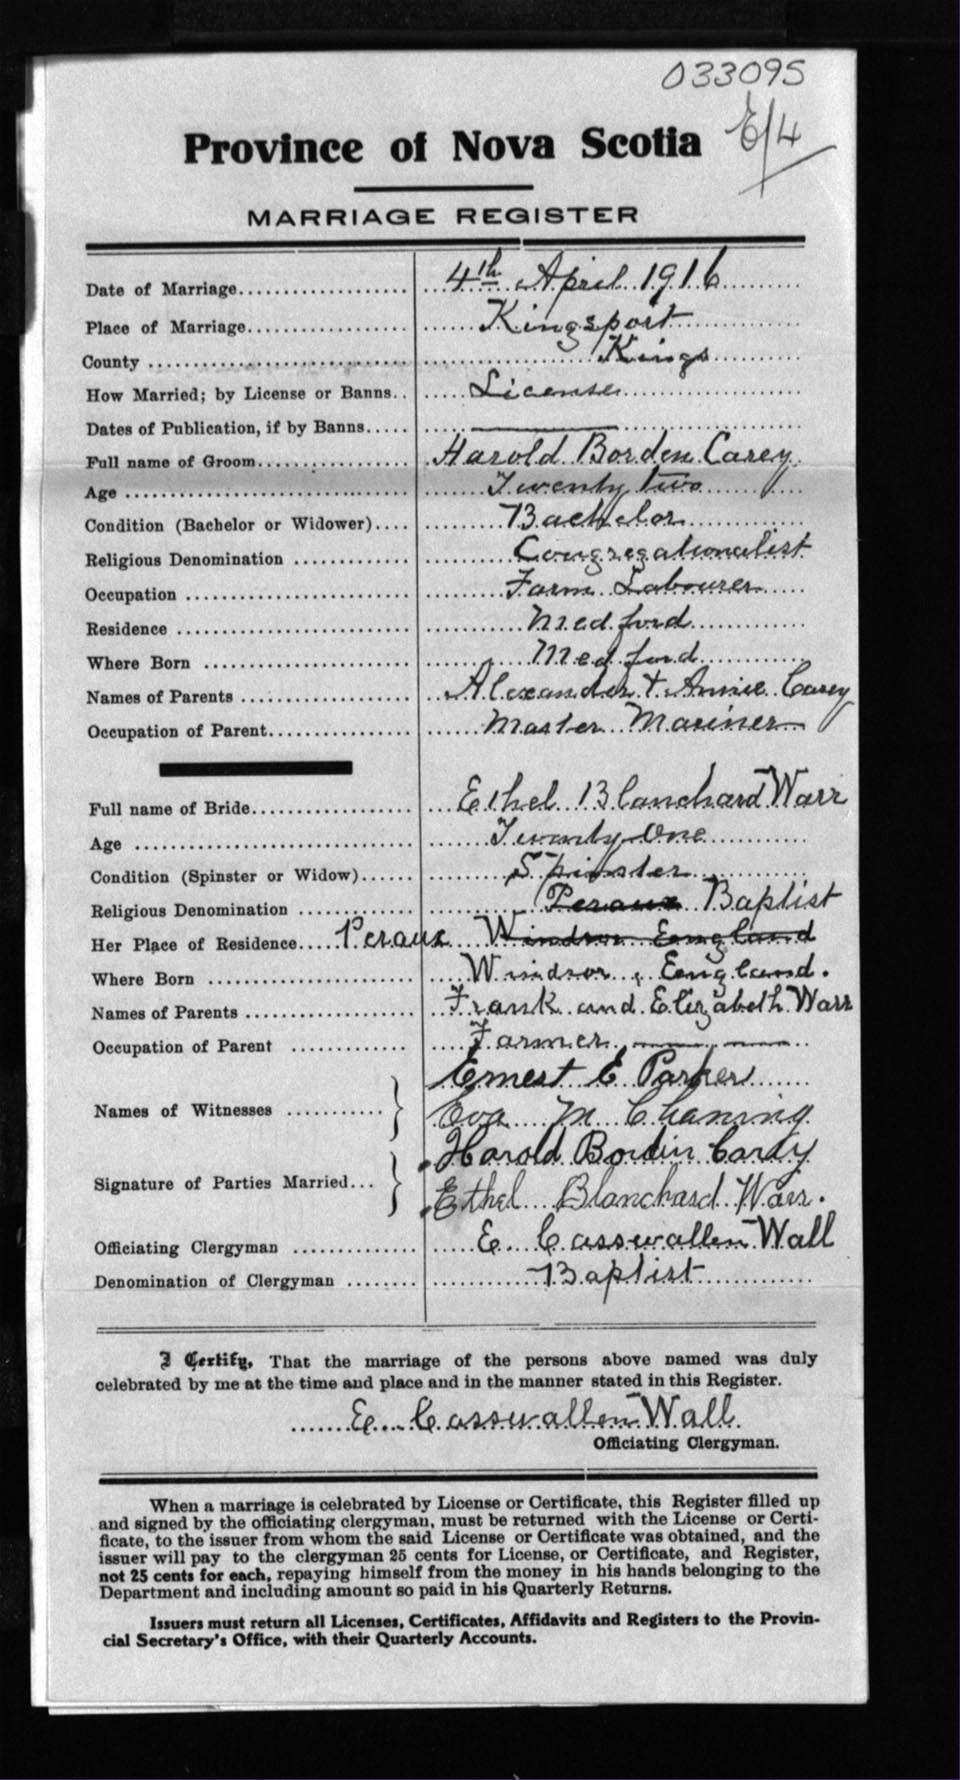 033095
E/4
Province of Nova Scotia
MARRIAGE REGISTER
Date of Marriage.................... 4th April 1916
Place of Marriage................... Kingsport
County ............................. Kings
How Married; by License or Banns.. License
Dates of Publication, if by Banns..... ———
Full name of Groom.................. Harold Borden Carey
Age ................................ Twenty two
Condition (Bachelor or Widower).... Bachelor
Religious Denomination ............. Congregationalist
Occupation ......................... Farm Labourer
Residence .......................... Medford
Where Born ......................... Medford
Names of Parents ................... Alexander + Annie Carey
Occupation of Parent................ Master Mariner
Full name of Bride.................. Ethel Blanchard Warr
Age ................................ Twenty One
Condition (Spinster or Widow)...... Spinster
Religious Denomination ............. Peraux Baptist
Her Place of Residence.... Peraux Windsor England
Where Born ......................... Windsor, England.
Names of Parents ................... Frank and Elizabeth Warr
Occupation of Parent ............... Farmer
Ernest E Parker
Names of Witnesses ...........
Eva M Chaning
Harold Bordin Carey
Signature of Parties Married...
Ethel Blanchard Warr.
Officiating Clergyman .............. E Casswallen Wall
Denomination of Clergyman ........ Baptist
I Certify, That the marriage of the persons above named was duly
celebrated by me at the time and place and in the manner stated in this Register.
E Casswallen Wall
Officiating Clergyman.
When a marriage is celebrated by License or Certificate, this Register filled up
and signed by the officiating clergyman, must be returned with the License or Certi-
ficate, to the issuer from whom the said License or Certificate was obtained, and the
issuer will pay to the clergyman 25 cents for License, or Certificate, and Register,
not 25 cents for each, repaying himself from the money in his hands belonging to the
Department and including amount so paid in his Quarterly Returns.
Issuers must return all Licenses, Certificates, Affidavits and Registers to the Provin-
cial Secretary's Office, with their Quarterly Accounts.